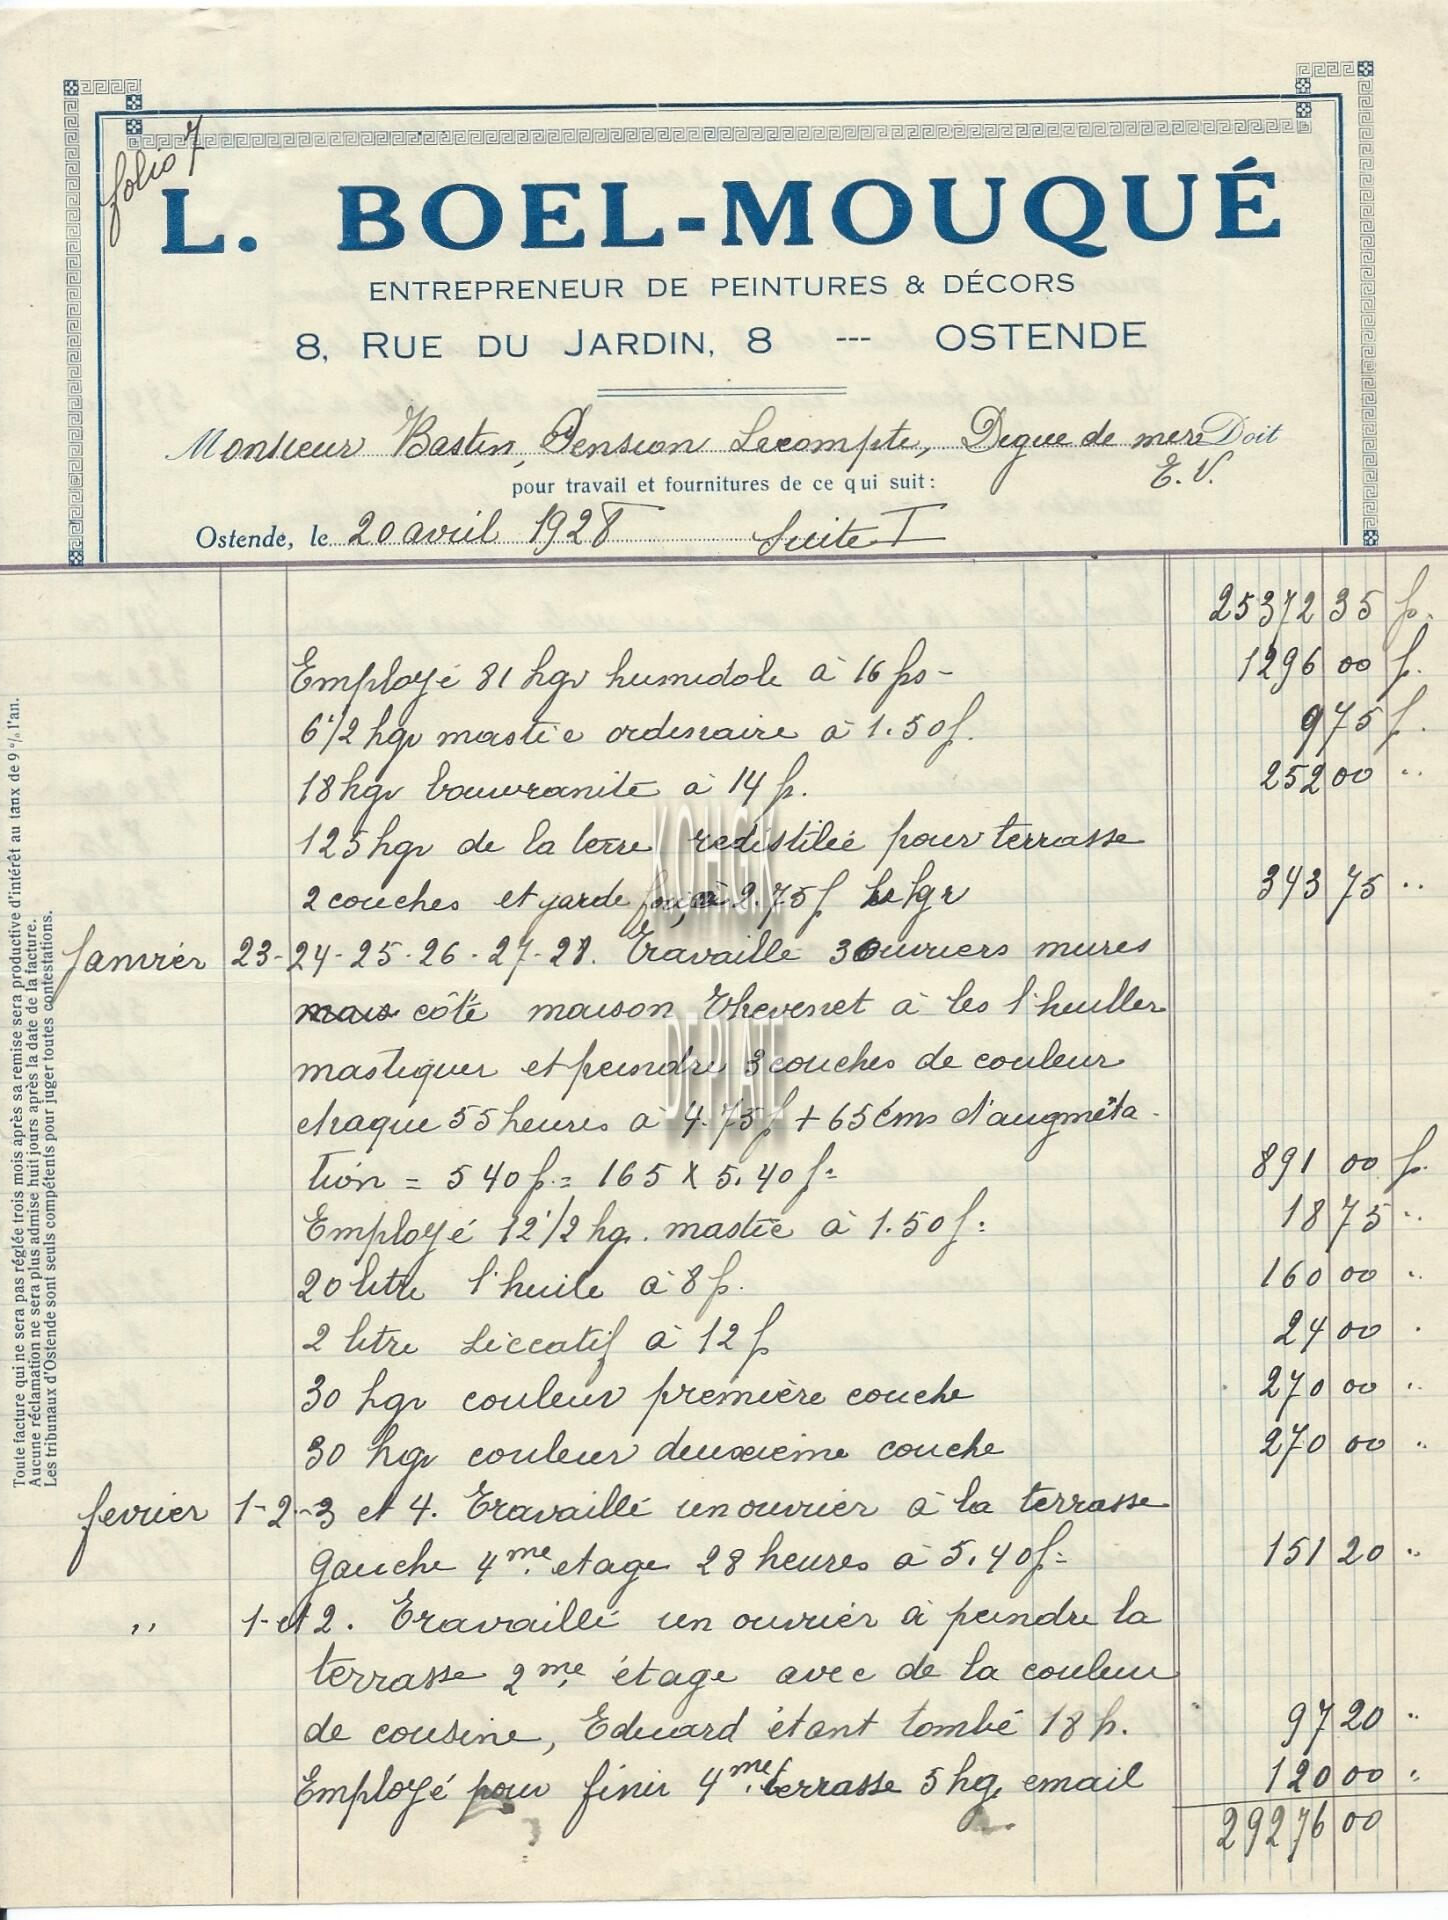 folio 7
L. BOEL-MOUQUÉ
ENTREPRENEUR DE PEINTURES & DÉCORS
8, RUE DU JARDIN, 8 --- OSTENDE
Monsieur Bastin, Pension Lecompte, Digue de mere Doit
E. V.
pour travail et fournitures de ce qui suit:
Ostende, le 20 avril 1928 Suite I
25372 35 f.
Employé 81 kgr humidole à 16 frs - 1296 00 f.
6 1/2 kgr mastic ordinaire à 1.50 f. 9 75 f.
18 kgr à 14 f. 252 00 ..
125 kgr de la terre redistilée pour terrasse
2 couches et garde fou à 2.75 f le kgr 343 75 ..
Janvier 23-24-25-26-27-28. Travaillé 3 ouvriers mures
mais côté maison Thevenet à les l'huiller
mastiquer et peindre 3 couches de couleur
chaque 55 heures à 4.75 f + 65 cms d'augmèta-
tion = 540 f. = 165 x 5.40 f = 891 00 f.
Employé 12 1/2 kg. mastic à 1.50 f = 18 75 ..
20 litre l'huile à 8 f. 160 00 ..
2 litre siccatif à 12 f 24 00 .
30 kgr couleur première couche 270 00 ..
30 kgr couleur deuxième couche 270 00 ..
fevrier 1-2-3 et 4. Travaillé un ouvrier à la terrasse
gauche 4me. etage 28 heures à 5.40 f = 151 20 ..
,, 1-et 2. Travaillé un ouvrier à peindre la
terrasse 2me. étage avec de la couleur
de cousine, Eduard étant tombé 18 h. 97 20 ..
Employé pour finir 4me. terrasse 5 kg. email 120 00 ..
29276 00
Toute facture qui ne sera pas réglée trois mois après sa remise sera productive d'intérêt au taux de 9 % l'an.
Aucune réclamation ne sera plus admise huit jours après la date de la facture.
Les tribunaux d'Ostende sont seuls compétents pour juger toutes contestations.
KOHGK
DE PLATE